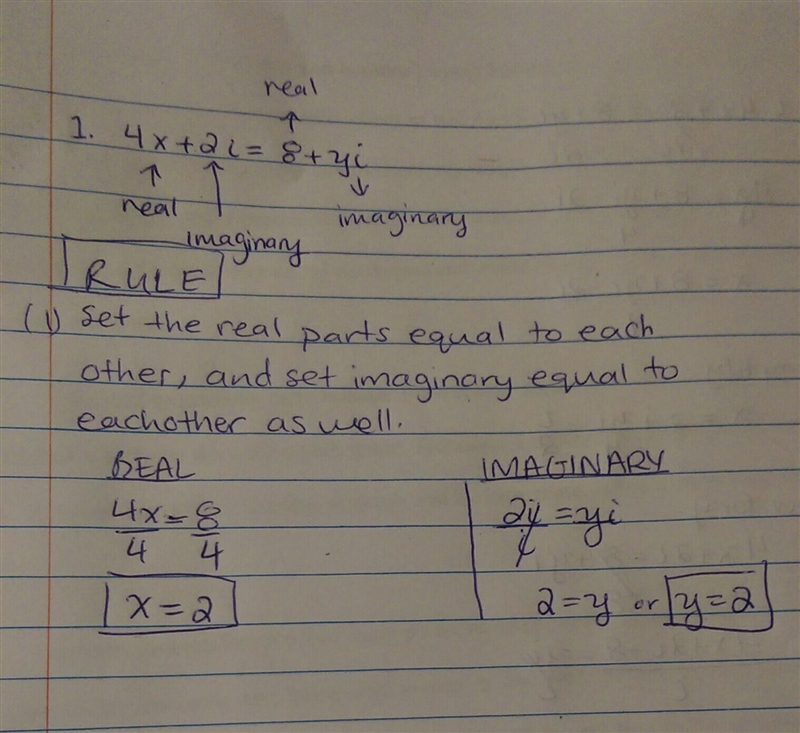 real
1. 4x+2i = 8+yi
real
imaginary
imaginary
RULE
(1) Set the real parts equal to each
other, and set imaginary equal to
eachother as well.
REAL
IMAGINARY
4x = 8
4 4
2i = yi
i
x = 2
2 = y or y = 2